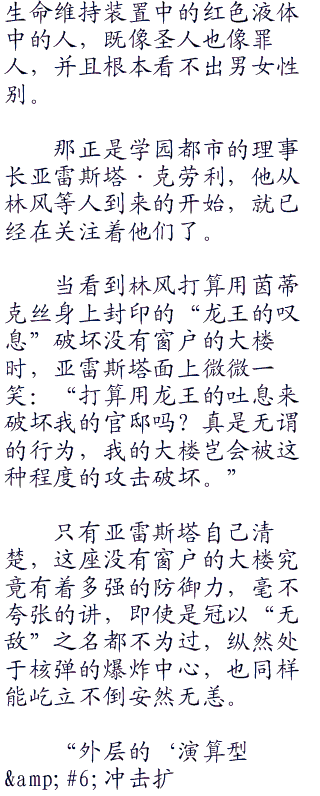 生命维持装置中的红色液体
中的人，既像圣人也像罪
人，并且根本看不出男女性
别。
那正是学园都市的理事
长亚雷斯塔·克劳利，他从
林风等人到来的开始，就已
经在关注着他们了。
当看到林风打算用茵蒂
克丝身上封印的“龙王的叹
息”破坏没有窗户的大楼
时，亚雷斯塔面上微微一
笑：“打算用龙王的吐息来
破坏我的官邸吗？真是无谓
的行为，我的大楼岂会被这
种程度的攻击破坏。”
只有亚雷斯塔自己清
楚，这座没有窗户的大楼究
竟有着多强的防御力，毫不
夸张的讲，即使是冠以“无
敌”之名都不为过，纵然处
于核弹的爆炸中心，也同样
能屹立不倒安然无恙。
“外层的‘演算型
&amp;#6;冲击扩